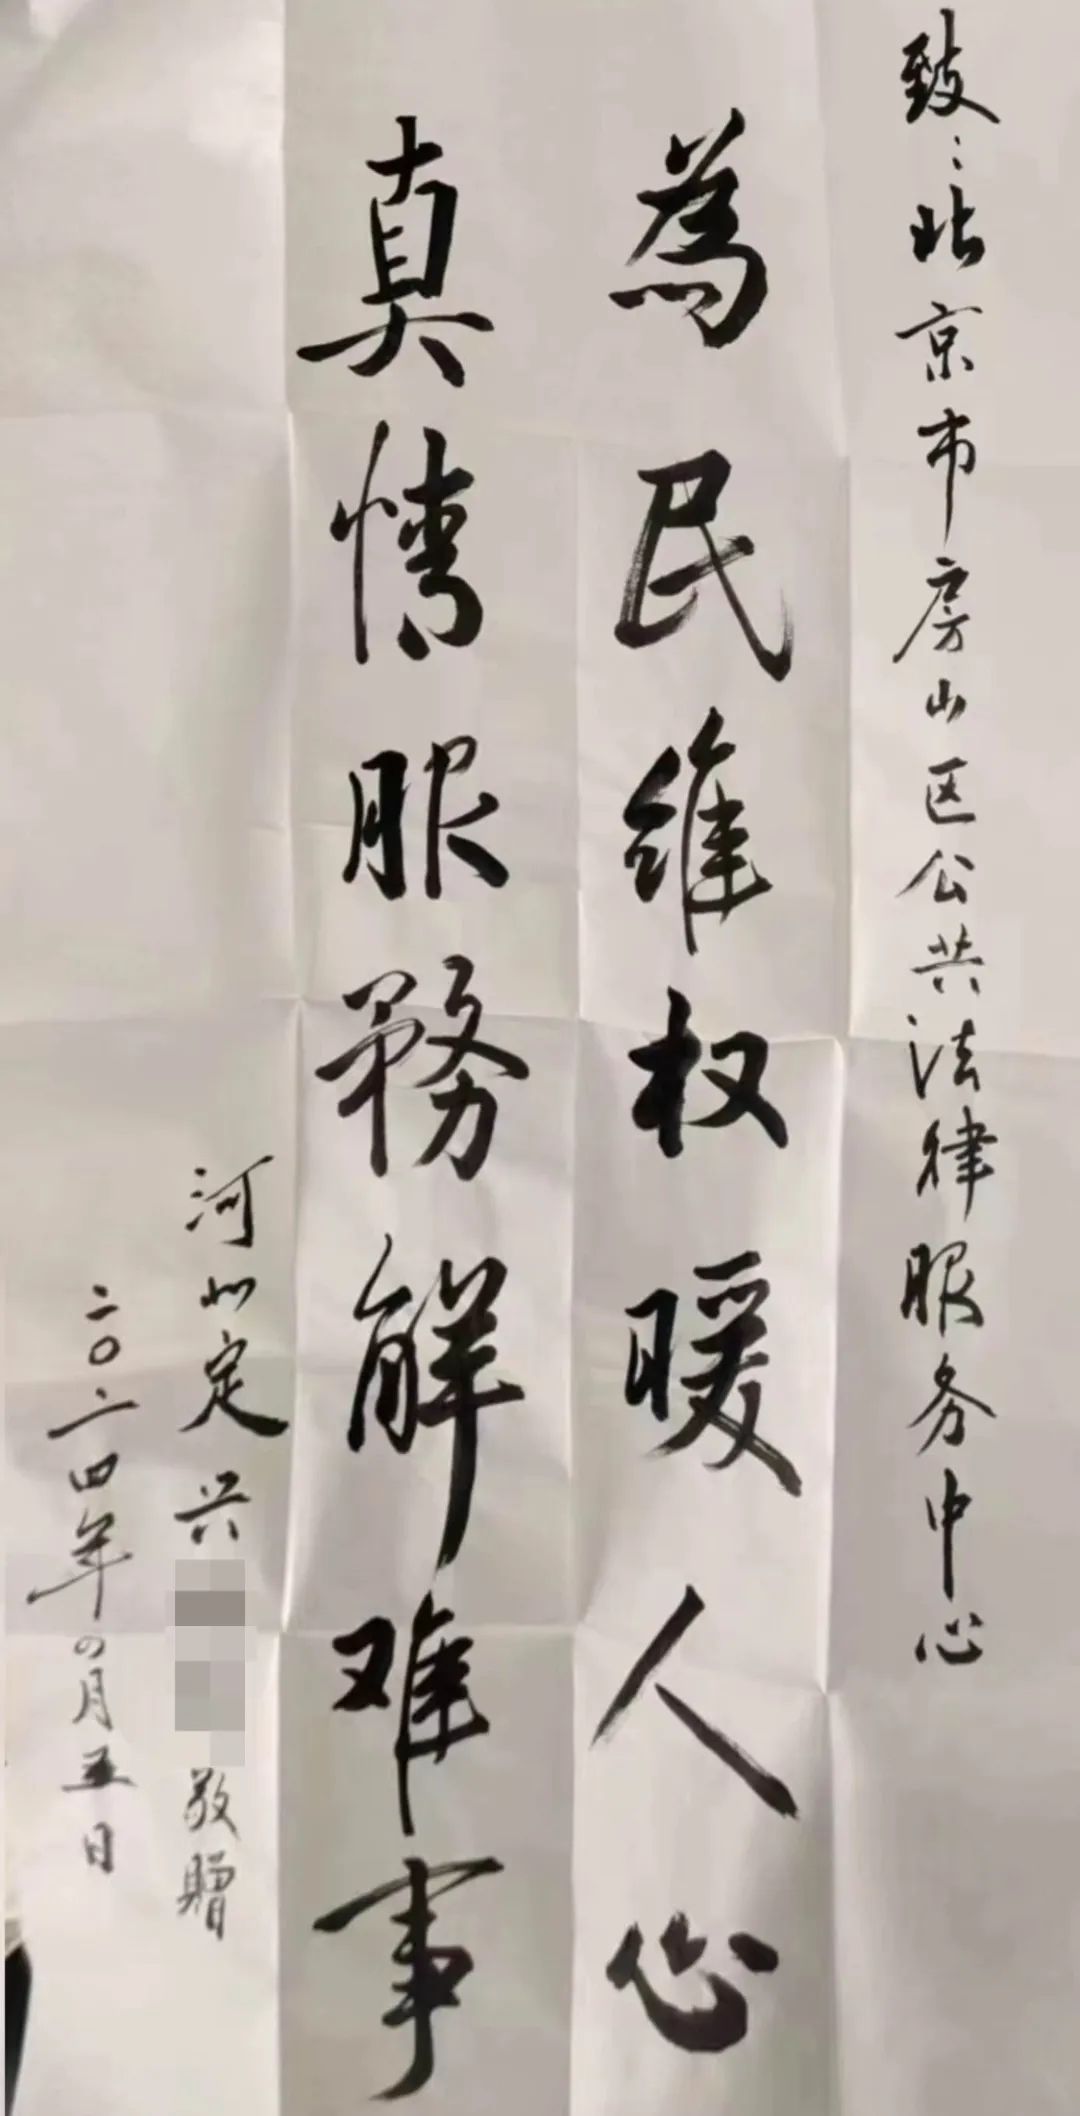 致：北京市房山区公共法律服务中心
為民维权暖人心
真情服務解难事
河北定兴
敬贈
二〇二四年四月五日